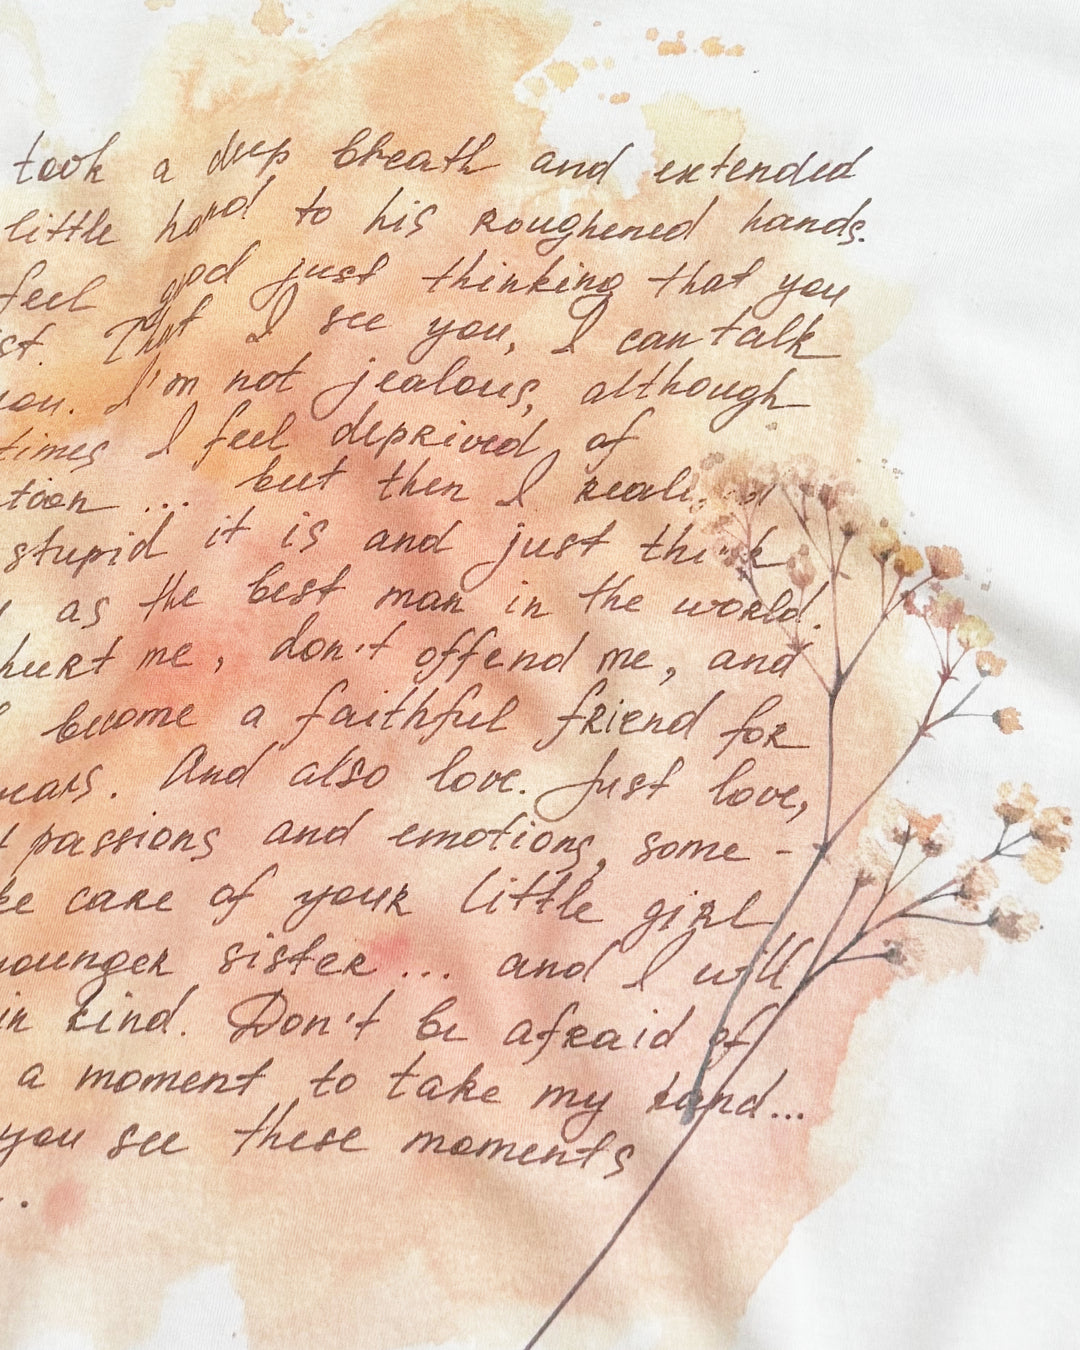 took a deep breath and extended
little hand to his roughened hands.
feel good just thinking that you
st. That I see you, I can talk
you. I'm not jealous, although
times I feel deprived of
tion ... but then I realized
stupid it is and just think
as the best man in the world.
hurt me, don't offend me, and
become a faithful friend for
years. And also love. Just love,
passions and emotions, some-
ke care of your little girl
younger sister ... and I will
in kind. Don't be afraid of
a moment to take my hand...
you see these moments
..